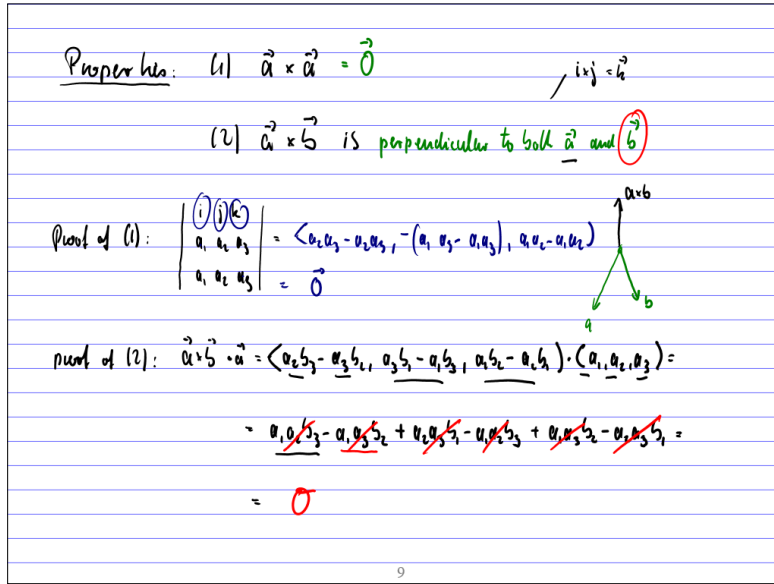 Properties: (1) a⃗ × a⃗ = 0⃗
i×j = k⃗
(2) a⃗ × b⃗ is perpendicular to both a⃗ and b⃗
a×b
Proof of (1): | i j k | = ⟨a₂a₃ - a₂a₃, -(a₁a₃ - a₁a₃), a₁a₂ - a₁a₂⟩
a₁ a₂ a₃
a₁ a₂ a₃ = 0⃗
a b
proof of (2): a⃗×b⃗ · a⃗ = ⟨a₂b₃ - a₃b₂, a₃b₁ - a₁b₃, a₁b₂ - a₂b₁⟩ · ⟨a₁, a₂, a₃⟩ =
= a₁a₂b₃ - a₁a₃b₂ + a₂a₃b₁ - a₁a₂b₃ + a₁a₃b₂ - a₂a₃b₁ =
= 0
9